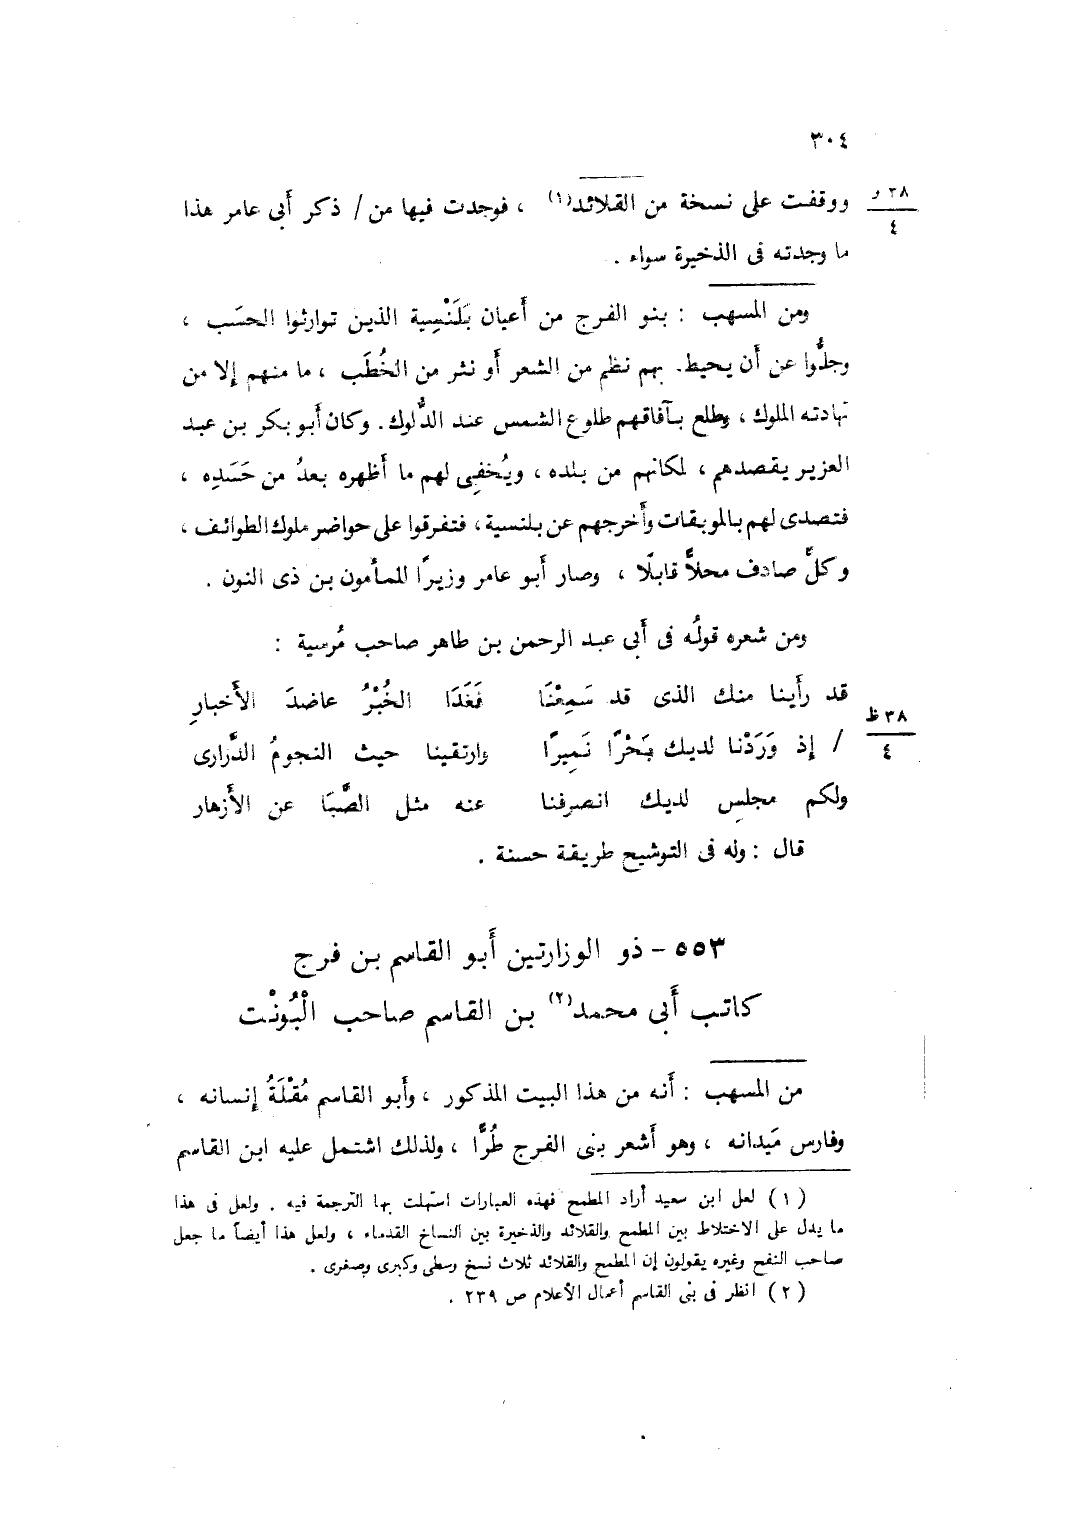 ٣٠٤
ووقفت على نسخة من القلائد(١) ، فوجدت فيها من / ذكر أَبى عامر هذا
٣٨ و
٤
ما وجدته فى الذخيرة سواء .
ومن المسهب : بنو الفرج من أَعيان بَلَنْسِية الذين توارثوا الحسَب ،
وجلُّوا عن أَن يحيط. بهم نظم من الشعر أَو نثر من الخُطَب ، ما منهم إلا من
تهادته الملوك ، وطلع بآفاقهم طلوع الشمس عند الدُّلوك. وكان أَبو بكر بن عبد
العزيز يقصدهم ، لمكانهم من بلده ، ويُخفِى لهم ما أَظهره بعدُ من حَسَدِه ،
فتصدى لهم بالموبقات وأَخرجهم عن بلنسية ، فتفرقوا على حواضر ملوك الطوائف ،
وكلٌّ صادف محلاًّ قابلًا ، وصار أَبو عامر وزيرًا للمأمون بن ذى النون .
ومن شعره قولُه فى أَبى عبد الرحمن بن طاهر صاحب مُرسية :
قد رأَينا منك الذى قد سَمِعْنَا فَغَدَا الخُبْرُ عاضدَ الأَخبارِ
٣٨ ظ
٤
/ إذ وَرَدْنا لديك بَحْرًا نَمِيرًا وارتقينا حيث النجومُ الدَّرارى
ولكم مجلسٍ لديك انصرفنا عنه مثل الصَّبَا عن الأَزهار
قال : وله فى التوشيح طريقة حسنة .
٥٥٣ - ذو الوزارتين أَبو القاسم بن فرج
كاتب أَبى محمد(٢) بن القاسم صاحب الْبُونْت
من المسهب : أَنه من هذا البيت المذكور ، وأَبو القاسم مُقْلَةُ إنسانه ،
وفارس مَيدانه ، وهو أَشعر بنى الفرج طُرًّا ، ولذلك اشتمل عليه ابن القاسم
(١) لعل ابن سعيد أراد المطمح فهذه العبارات استهلت بها الترجمة فيه . ولعل فى هذا
ما يدل على الاختلاط بين المطمح والقلائد والذخيرة بين النساخ القدماء ، ولعل هذا أيضاً ما جعل
صاحب النفح وغيره يقولون إن المطمح والقلائد ثلاث نسخ وسطى وكبرى وصغرى .
(٢) انظر فى بنى القاسم أعمال الأعلام ص ٢٣٩ .